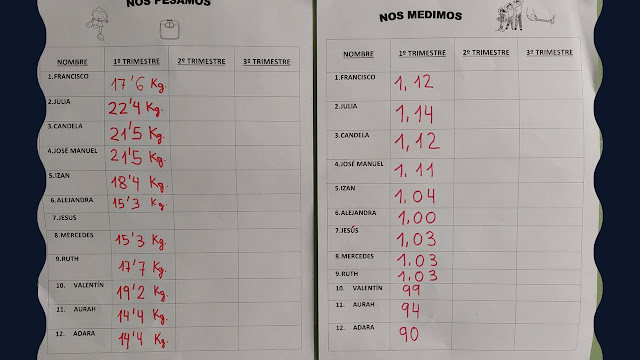 NOS PESAMOS
NOMBRE 1º TRIMESTRE 2º TRIMESTRE 3º TRIMESTRE
1.FRANCISCO 17'6 Kg.
2.JULIA 22'4 Kg.
3.CANDELA 21'5 Kg.
4.JOSÉ MANUEL 21'5 Kg.
5.IZAN 18'4 Kg.
6.ALEJANDRA 15'3 Kg.
7.JESUS
8.MERCEDES 15'3 Kg.
9.RUTH 17'7 Kg.
10. VALENTÍN 19'2 Kg.
11. AURAH 14'4 Kg.
12. ADARA 14'4 Kg.
NOS MEDIMOS
NOMBRE 1º TRIMESTRE 2º TRIMESTRE 3º TRIMESTRE
1.FRANCISCO 1,12
2.JULIA 1,14
3.CANDELA 1,12
4.JOSÉ MANUEL 1,11
5.IZAN 1.04
6.ALEJANDRA 1,00
7.JESÚS 1,03
8.MERCEDES 1.03
9.RUTH 1.03
10. VALENTÍN 99
11. AURAH 94
12. ADARA 90